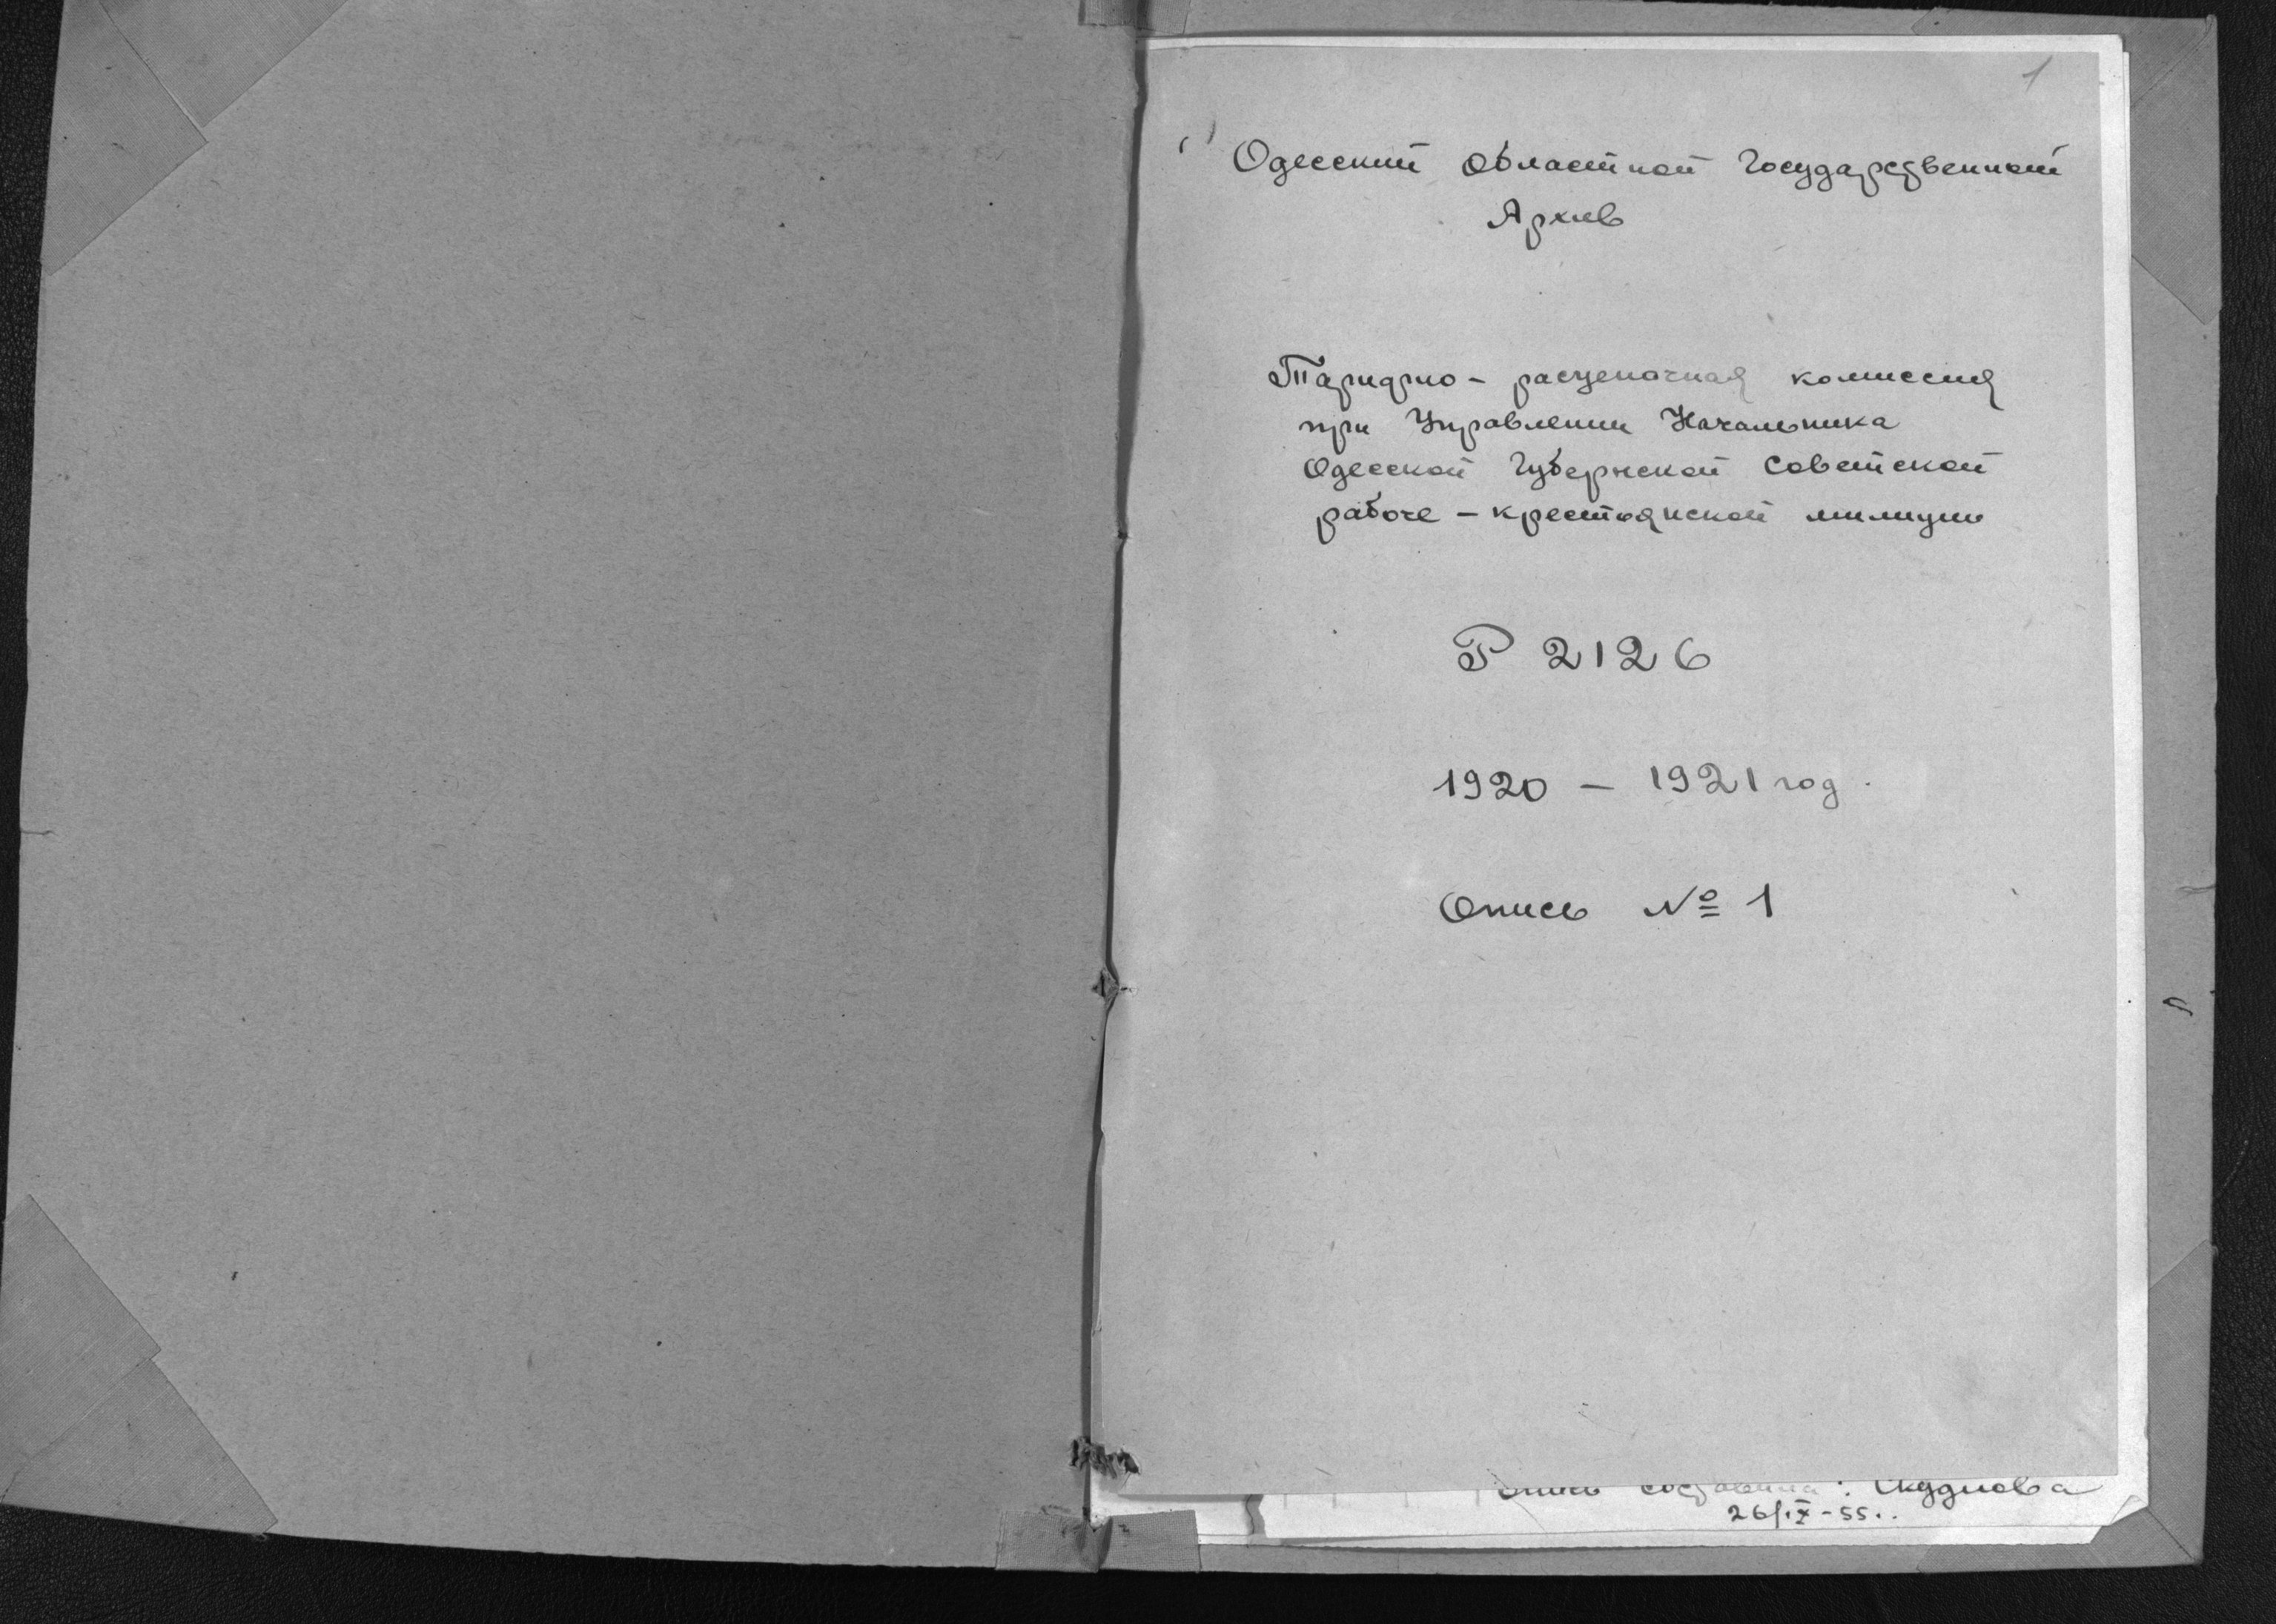 1
Одесский областной Государственный
Архив
Тарифно - расценочная комиссия
при Управлении Начальника
Одесской Губернской Советской
рабоче - крестьянской милиции
Р 2126
1920 - 1921 год.
Опись № 1
Опись составила:
26/IX-55.